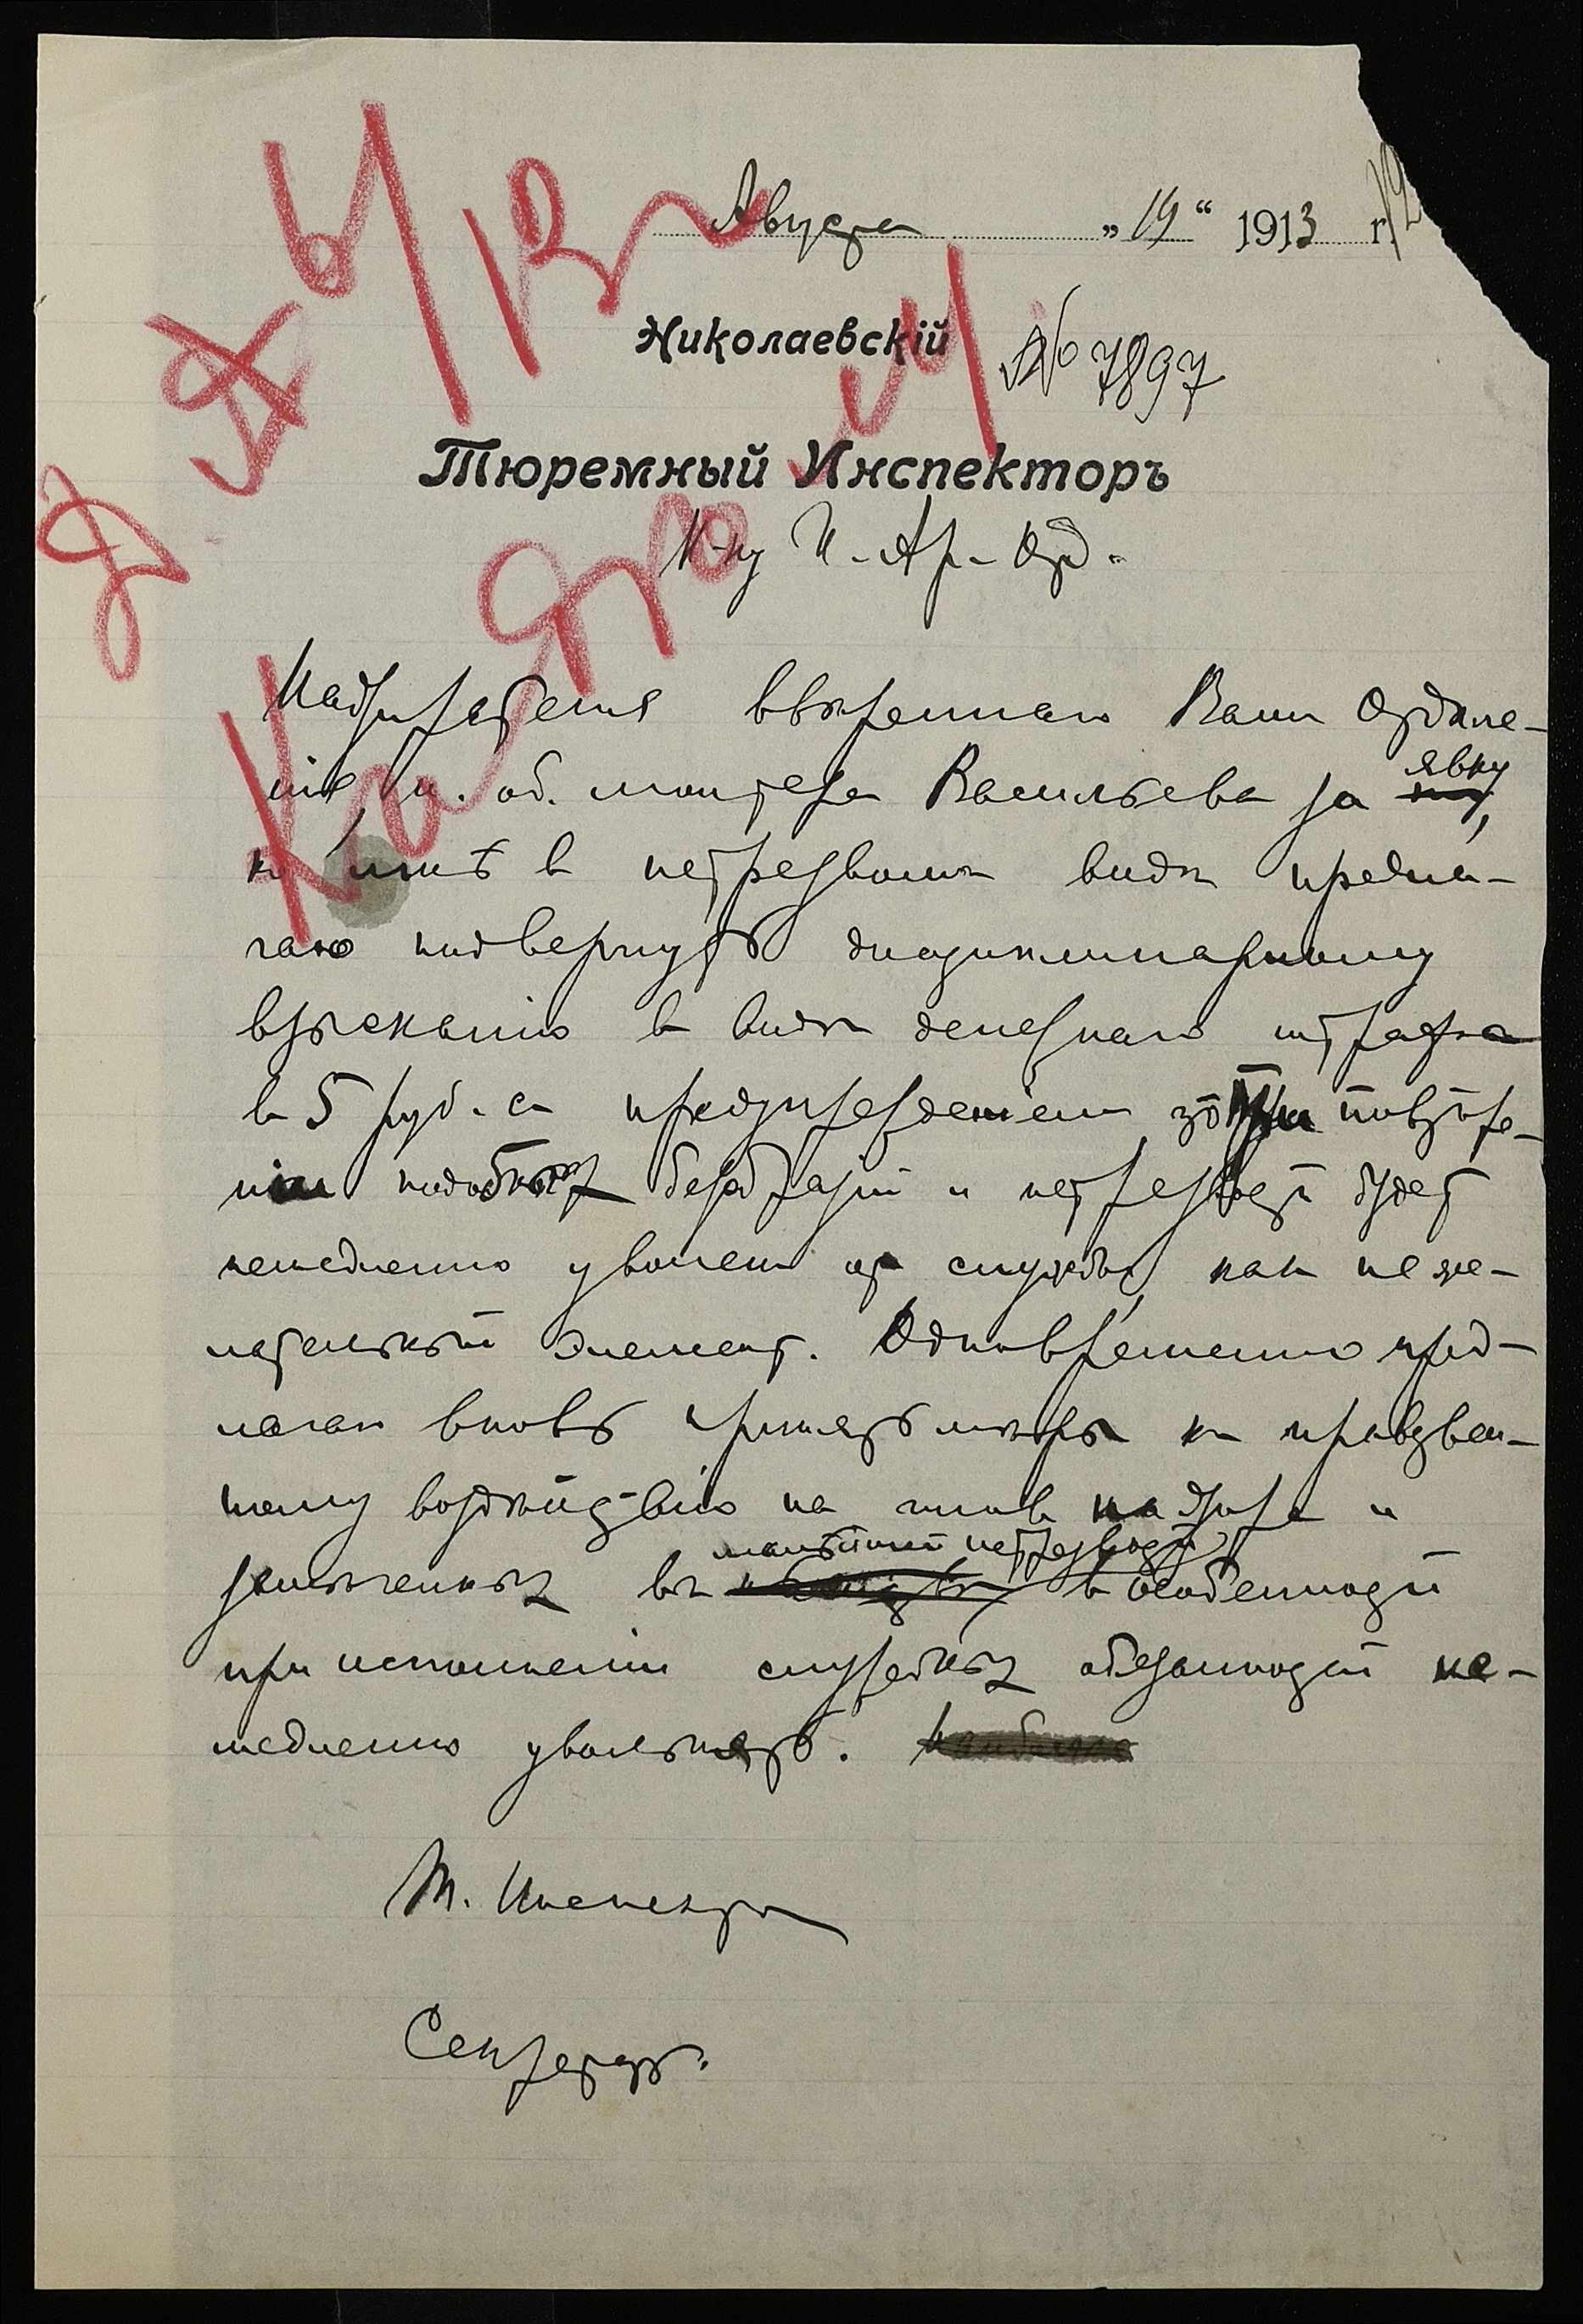 Августа „19“ 1913 г.
Николаевскій
№ 7897
Тюремный Инспекторъ
Н-ку И. Ар. Отд.
Надзирателя ввѣреннаго Вам Отдѣле-
нія и. об. монтера Васильева за явку
ко мнѣ в нетрезвомъ видѣ предла-
гаю подвергнуть дисциплинарному
взысканію в видѣ денежнаго штрафа
в 5 руб. съ предупрежденіем что при повторе-
ніи подобных безобразій и нетрезвости будет
немедленно уволен от службы, как не же-
лательный элемент. Одновременно пред-
лагаю вновь принять мѣры к нравствен-
ному воздѣйствію на чинов надзора и
замѣченных въ малѣйшей нетрезвости в особенности
при исполненіи служебных обязанностей не-
медленно увольнять.
Т. Инспектор
Секретарь